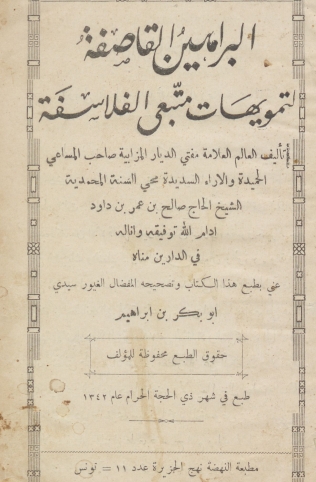 البراهين القاصفة
لتمويهات متبعى الفلاسفة
تأليف العالم العلامة مفتي الديار المزابية صاحب المساعي
الحميدة والاراء السديدة محي السنة المحمدية
الشيخ الحاج صالح بن عمر بن داود
ادام الله توفيقه واناله
في الدارين مناه
عني بطبع هذا الكتاب وتصحيحه المفضال الغيور سيدي
ابو بكر بن ابراهيم
حقوق الطبع محفوظة للمؤلف
طبع في شهر ذي الحجة الحرام عام ١٣٤٢
مطبعة النهضة نهج الجزيرة عدد ١١ = تونس